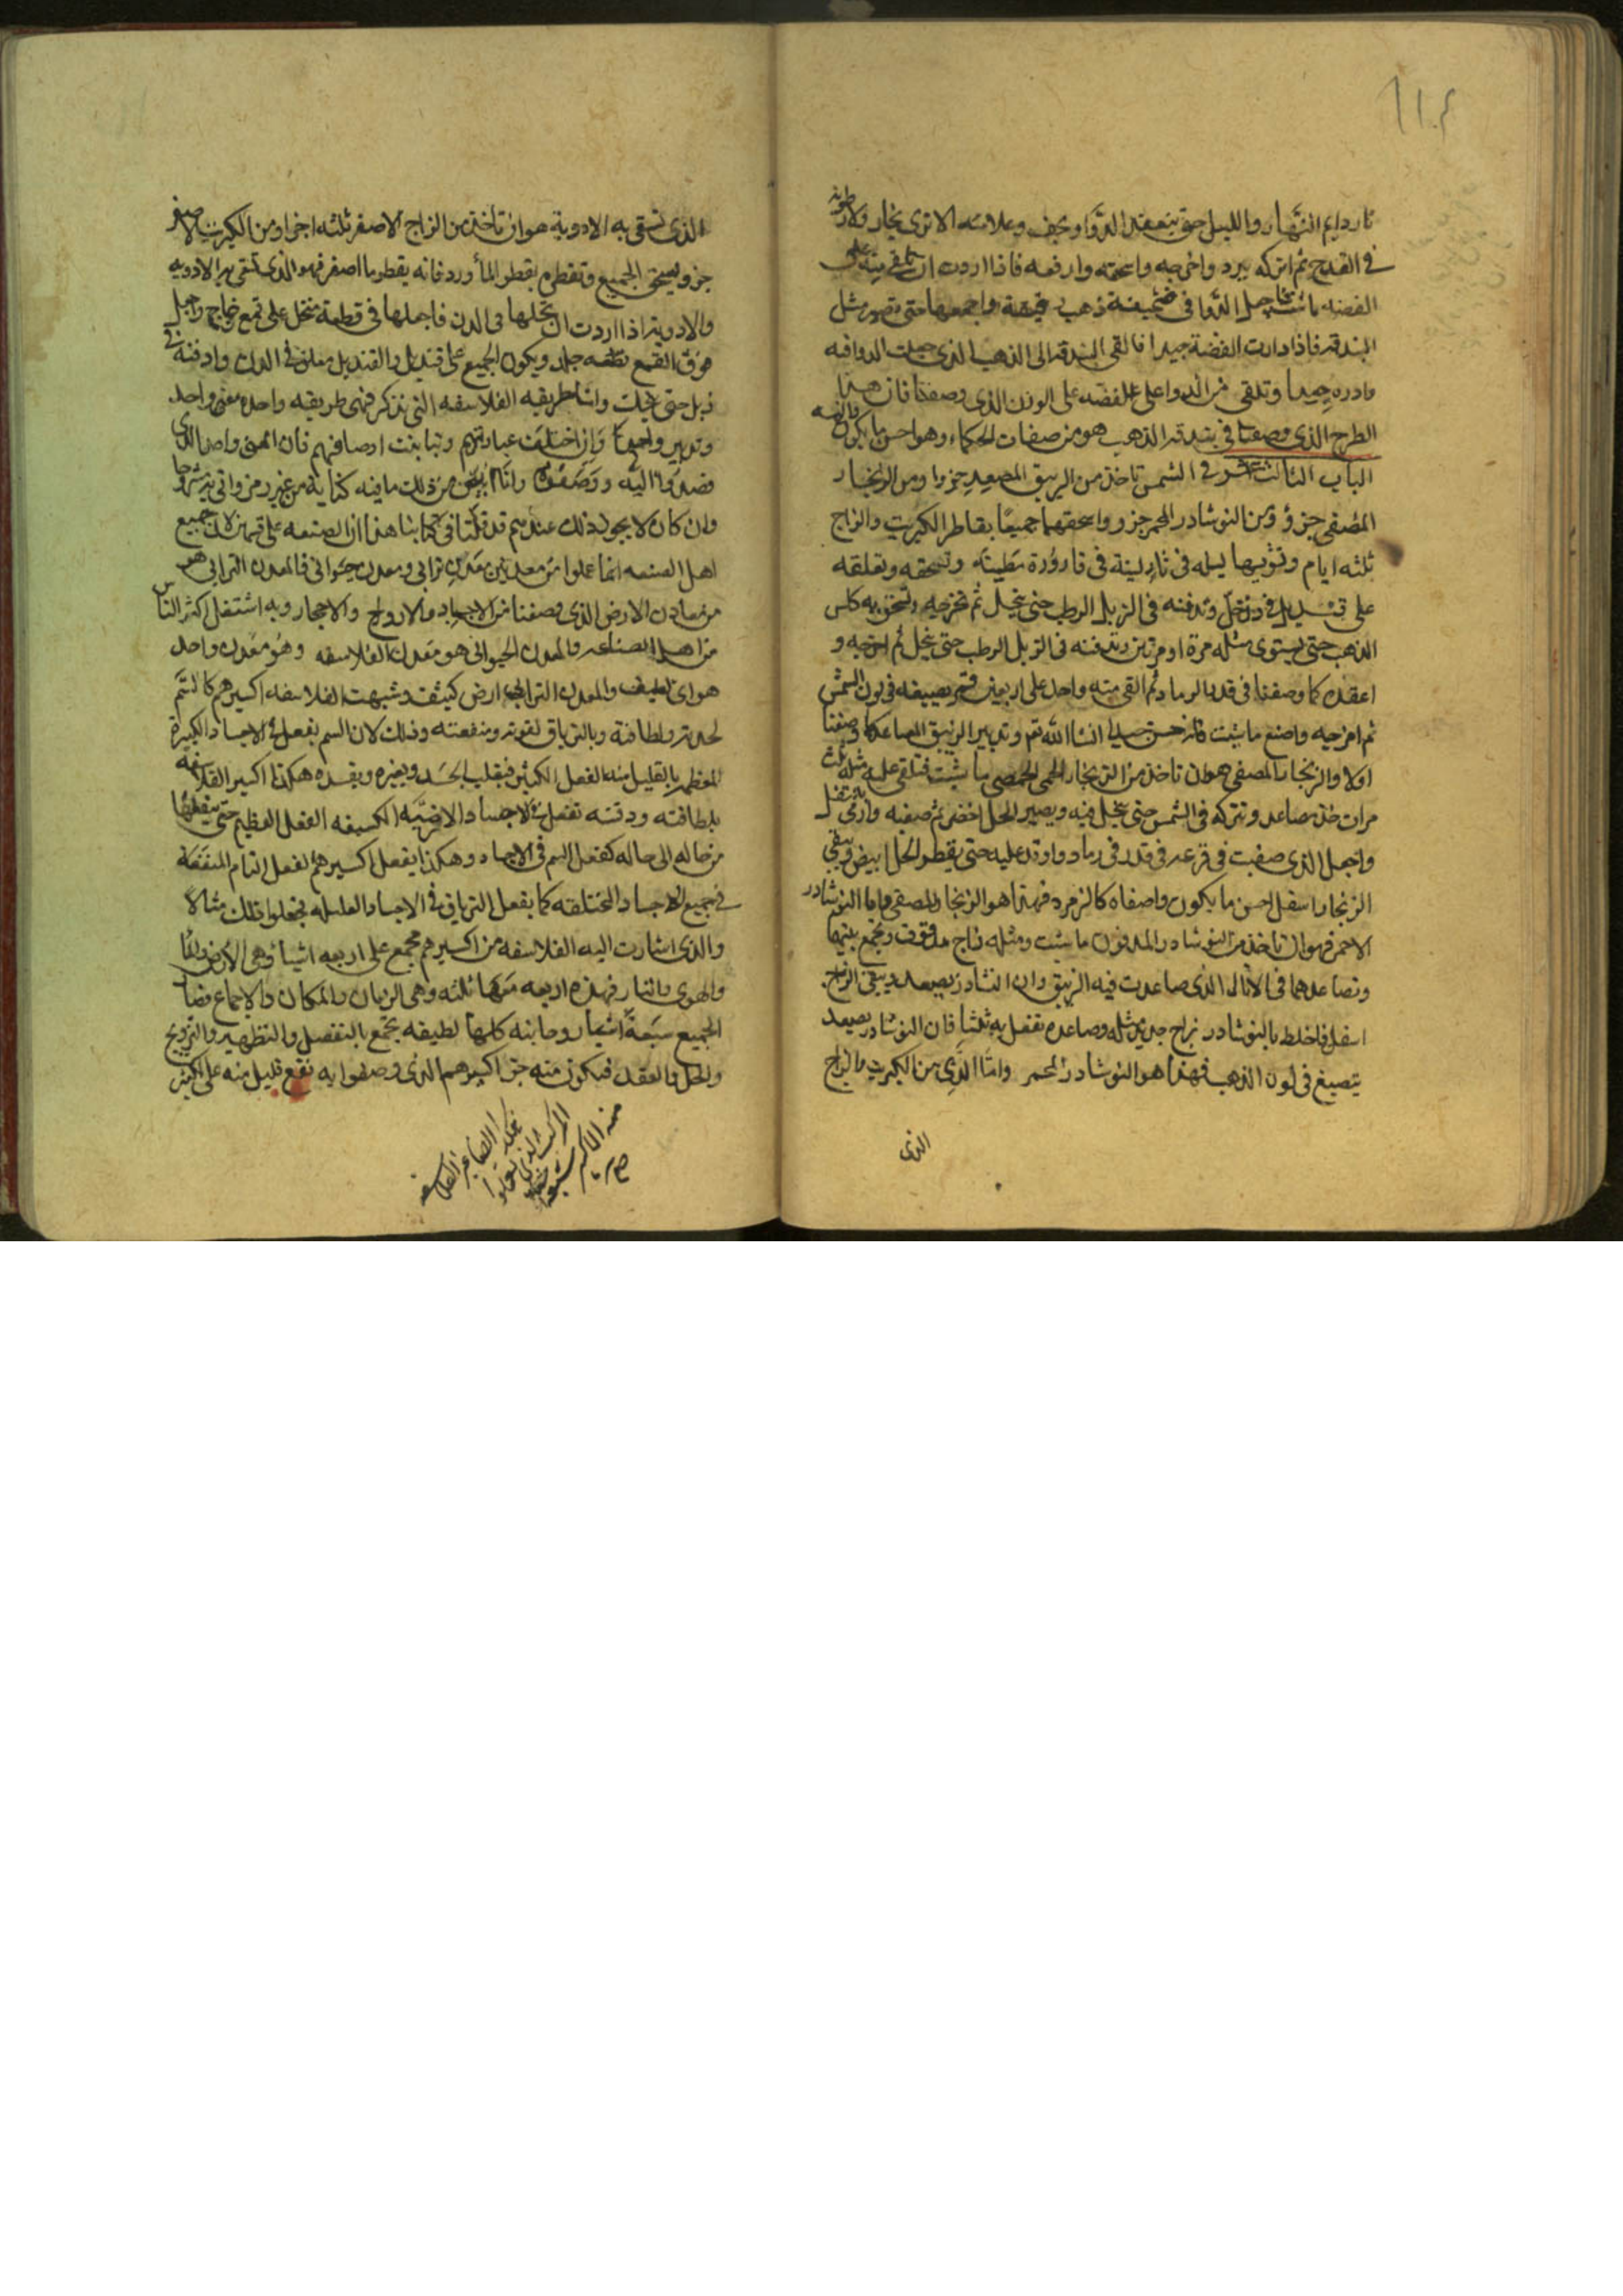 ١١٠٤
نار دايم النهار والليل حتى ينعقد الدوا ويجف وعلامته الا ترى بخار ولا رطوبة
في القدح ثم اتركه يبرد واخرجه واسحقه وارفعه فاذا اردت ان تلقي منه على
الفضه ما شئت اجعل الدوا في صحيفة ذهب واجمعها حتى تصير مثل
البندقه فاذا دارت الفضة جيدا فالقى البندقه الى الذهب الذي جعلت الدوا فيه
وادره جيدا وتلقي من الدوا على الفضه على الوزن الذي وصفنا فان هذا
الطرح الذي وصفنا في بندقه الذهب هو من صفات الحكماء وهو احسن ما يكون
الباب الثالث عشر في الشمس تاخذ من الزيبق المصعد جزوا ومن الزنجار
المصفى جزؤ ومن النوشادر المحمر جزو واسحقهما جميعا بقاطر الكبريت والزاج
ثلثه ايام وتشويها ليله في نار لينة في قارورة مطينة وتسحقه وتعلقه
على قنديل في دن خل وتدفنه في الزبل الرطب حتى ينحل ثم تخرجه وتسحق به كلس
الذهب حتى يستوي مثله مرة او مرتين وتدفنه في الزبل الرطب حتى ينحل ثم اخرجه و
اعقده كما وصفنا في قدر الرماد ثم القى منه واحد على اربعين قمر يصبغه في لون الشمش
ثم اخرجه واصنع ما شئت فانه حسن جيد انشا الله تع وتدبير الزيبق المصاعد كما وصفنا
اولا والزنجار المصفى هو ان تاخذ من الزنجار الحمصي ما شئت فتلقي عليه مثله ثلث
مرات خل مصاعد وتتركه في الشمس حتى ينحل فيه ويصير الخل اخضر ثم صفيه وارمي بالثفل
واجعل الذي صفيت في قرعه في قدر في رماد واوقد عليه حتى يقطر الخل ابيض ويبقى
الزنجار اسفل احسن ما يكون واصفاه كالزمرد فهذا هو الزنجار المصفى واما النوشادر
الاحمر فهو ان تاخذ من النوشادر المعدني ما شئت ومثله زاج مدقوق وتجمع بينهما
وتصاعدهما في الاثال الذي صاعدت فيه الزيبق وان النشادر يصعد ويبقى الزاج
اسفل فاخلط بالنوشادر بزاج جديد مثله وصاعده تفعل به ثلثا فان النوشادر يصعد
يتصبغ في لون الذهب فهذا هو النوشادر المحمر واما الذي من الكبريت والزاج
الذي
الذي تسقى به الادوية هو ان تاخذ من الزاج الاصفر ثلثه اجزا ومن الكبريت الاصفر
جزو ويسحق الجميع وتقطره بقطر الماورد فانه يقطر ما اصفر فهو الذي تسقى به الادويه
والادويه اذا اردت ان تحلها في الدن فاجعلها في قطعة منخل على قمع زجاج واجعل
فوق القمع قطعه جلد ويكون الجميع على قنديل والقنديل معلق في الدن وادفنه في
زبل حتى ينحل وانما طريقه الفلاسفه التي نذكر فهي طريقه واحده معنى واحد
وتدبير واحد وان اختلفت عباراتهم وتباينت اوصافهم فان المعنى واحد الذي
قصدوا اليه ووصفوه وانا ابين من ذلك ما فيه كفاية من غير رمز واتي به مشروحا
وان كان لا يجوز ذلك عندهم قد قلنا في كتابنا هذا ان الصنعه على قسمين لان جميع
اهل الصنعه انما عملوا من معدنين معدن ترابي ومعدن حيواني فالمعدن الترابي هو
من معادن الارض الذي وصفنا من الاجساد والارواح والاحجار وبه اشتغل اكثر الناس
من اهل الصناعه والمعدن الحيواني هو معدن الفلاسفه وهو معدن واحد
هوائي لطيف والمعدن الترابي ارض كثيف وشبهت الفلاسفه اكسيرهم كالسم
لحدته ولطافته وبالترياق لقوته ومنفعته وذلك لان السم يفعل في الاجساد الكبيرة
العظيمه بالقليل منه الفعل الكثير فيقلب الجسد ويغيره ويفسده هكذا اكسير الفلاسفه
بلطافته ودقته تفعل في الاجساد الارضيه الكثيفه الفعل العظيم حتى ينقلها
من حاله الى حاله كفعل السم في الاجساد وهكذا يفعل اكسيرهم الفعل التام المنفعة
في جميع الاجساد المختلفه كما يفعل الترياق في الاجساد العليله فجعلوا ذلك مثالا
والذي اشارت اليه الفلاسفه من اكسيرهم مجمع على اربعه اشيا وهي الارض والما
والهوى والنار فهذه اربعه معها ثلثه وهي الزمان والمكان والاجماع فصار
الجميع سبعة اشيا روحانيه كلها لطيفه تجمع بالتفصيل والتطهير والتزويج
والحل والعقد فيكون منه جزا اكسيرهم الذي وصفوا به نفع قليل منه على الكثير